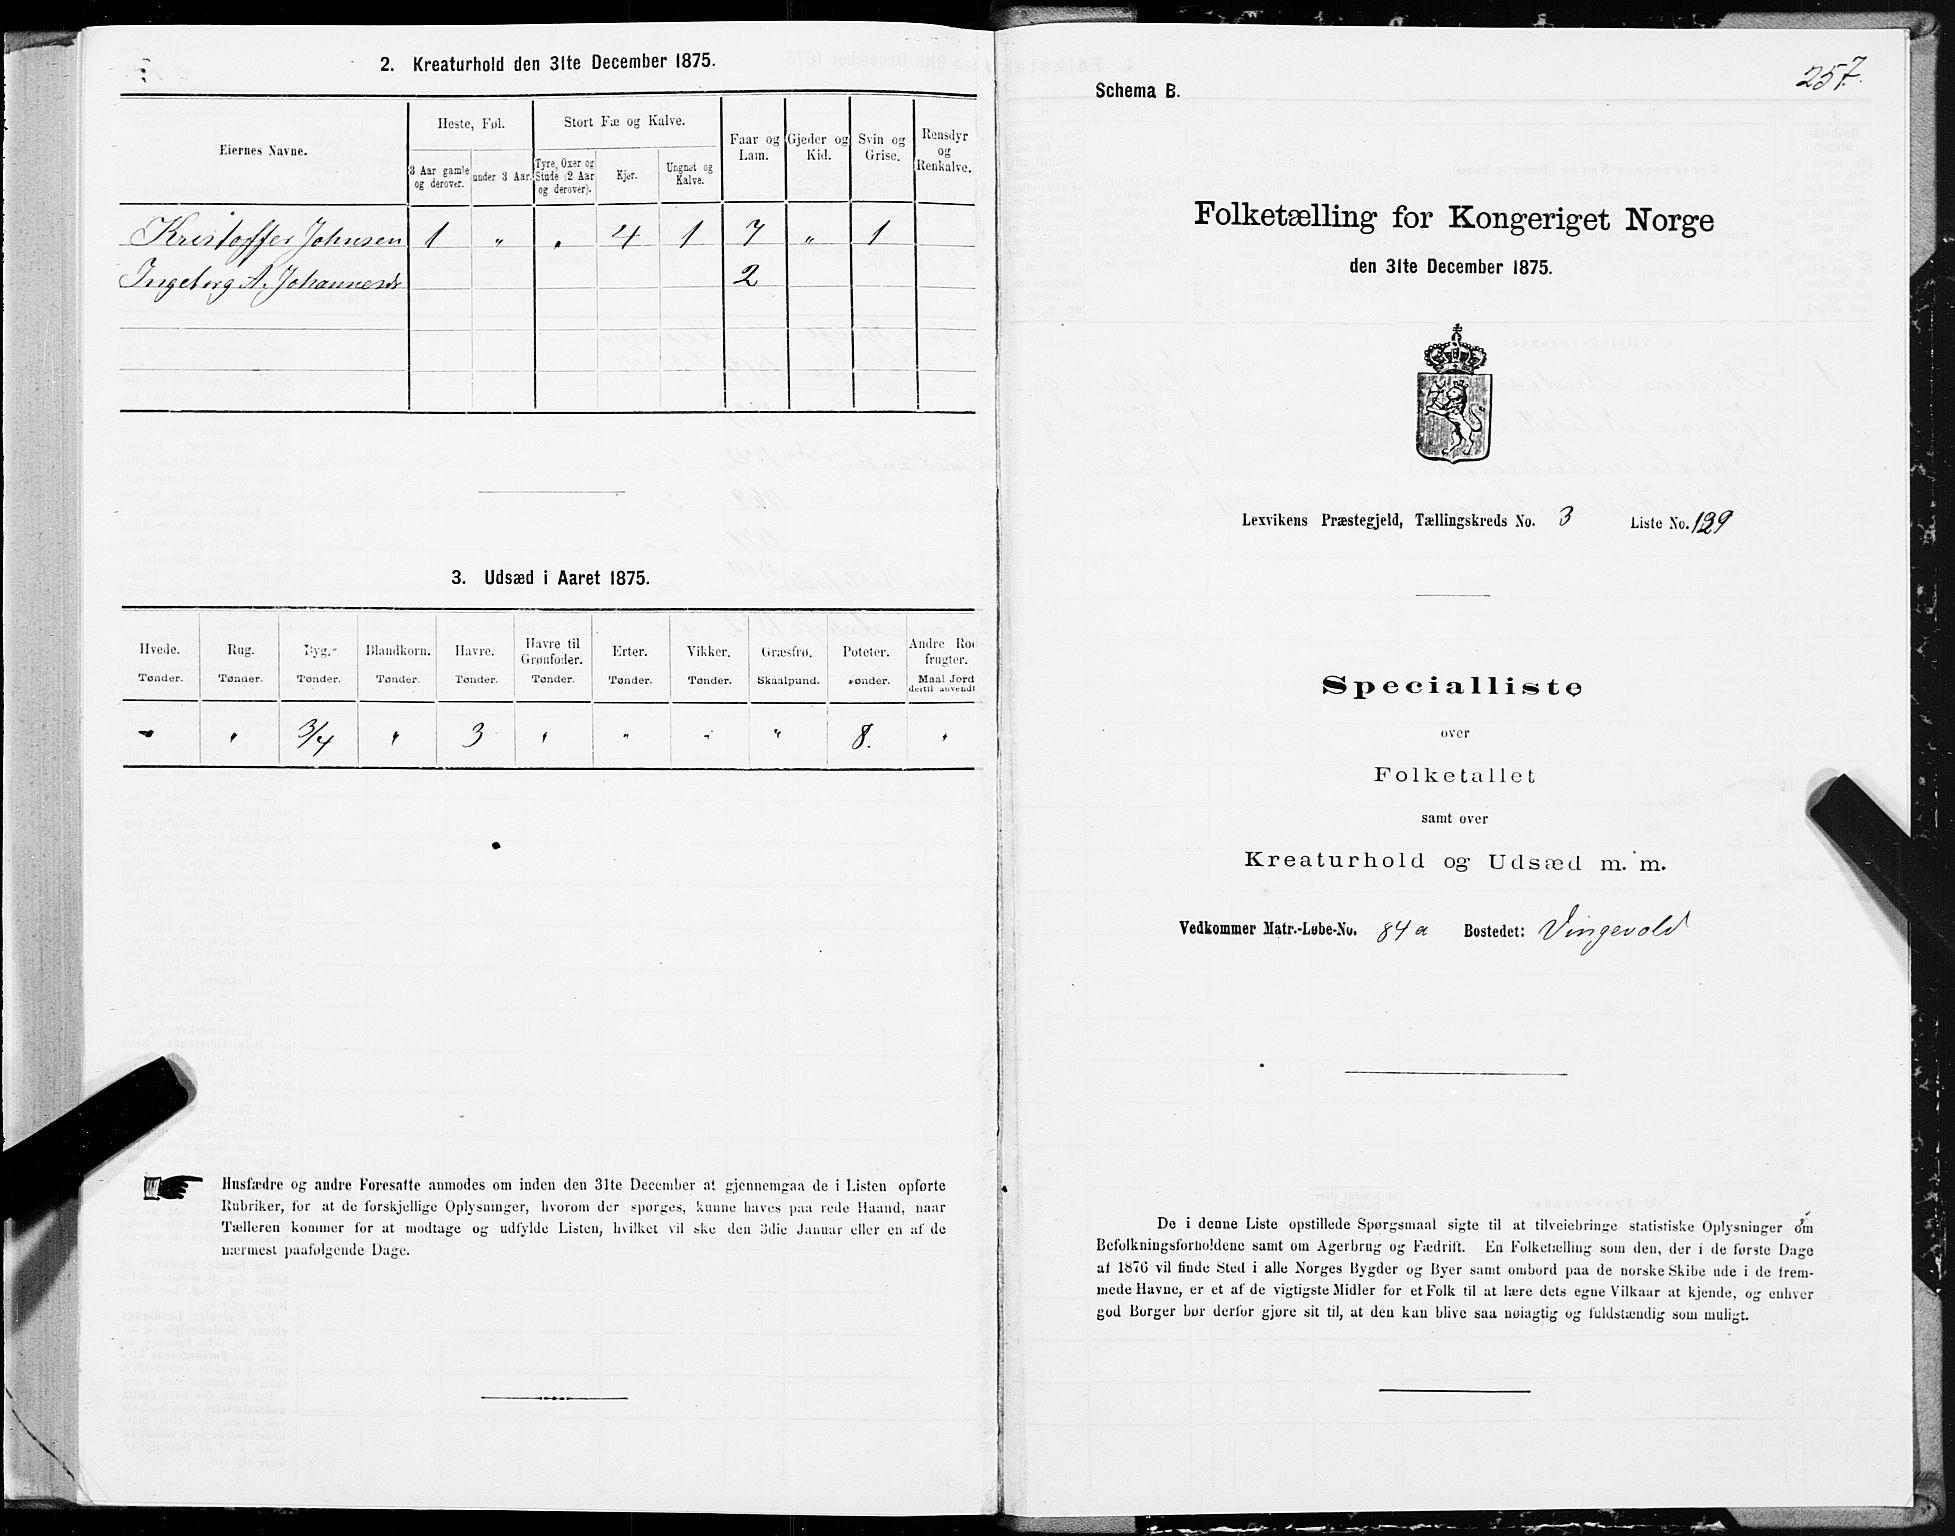 2. Kreaturhold den 31te December 1875.
Eiernes Navne.
Heste, Føl.
Stort Fæ og Kalve.
Faar og Lam.
Gjeder og Kid.
Svin og Grise.
Rensdyr og Renkalve.
3 Aar gamle og derover.
under 3 Aar.
Tyre, Oxer og Stude (2 Aar og derover).
Kjør.
Ungnøt og Kalve.
Kristoffer Johnsen 1 " " 4 1 7 " 1
Ingeborg A. Johannesdr 2
3. Udsæd i Aaret 1875.
Hvede. Rug. Byg. Blandkorn. Havre. Havre til Grønfoder. Erter. Vikker. Græsfrø. Poteter. Andre Rodfrugter.
Tønder. Tønder. Tønder. Tønder. Tønder. Tønder. Tønder. Tønder. Skaalpund. Tønder. Maal Jord dertil anvendt
" " 3/4 " 3 " " " " 8. "
Husfædre og andre Foresatte anmodes om inden den 31te December at gjennemgaa de i Listen opførte
Rubriker, for at de forskjellige Oplysninger, hvorom der spørges, kunne haves paa rede Haand, naar
Tælleren kommer for at modtage og udfylde Listen, hvilket vil ske den 3die Januar eller en af de
nærmest paafølgende Dage.
257.
Schema B.
Folketælling for Kongeriget Norge
den 31te December 1875.
Lexvikens Præstegjeld, Tællingskreds No. 3 Liste No. 129
Specialliste
over
Folketallet
samt over
Kreaturhold og Udsæd m. m.
Vedkommer Matr.-Løbe-No. 84a Bostedet: Vingevold
De i denne Liste opstillede Spørgsmaal sigte til at tilveiebringe statistiske Oplysninger om
Befolkningsforholdene samt om Agerbrug og Fædrift. En Folketælling som den, der i de første Dage
af 1876 vil finde Sted i alle Norges Bygder og Byer samt ombord paa de norske Skibe ude i de frem-
mede Havne, er et af de vigtigste Midler for et Folk til at lære dets egne Vilkaar at kjende, og enhver
god Borger bør derfor gjøre sit til, at den kan blive saa nøiagtig og fuldstændig som muligt.